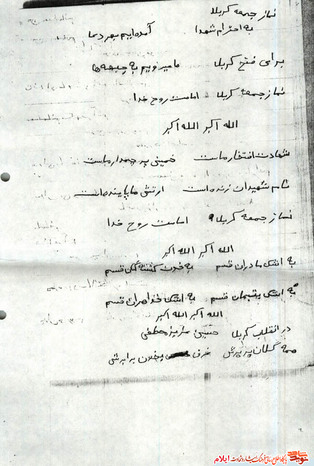 نماز جمعه کربلا
به احترام شهدا آمده‌ایم بهر دعا
برای فتح کربلا ما میرویم به جبهه‌ها
نماز جمعه کربلا امامت روح خدا
الله اکبر الله اکبر
شهادت افتخار ماست خمینی پرچمدار ماست
نام شهیدان زنده است ارتش ما پاینده است
نماز جمعه کربلا امامت روح خدا
الله اکبر الله اکبر
به اشک مادران قسم به خون کشتگان قسم
به اشک یتیمان قسم به اشک خواهران قسم
الله اکبر الله اکبر
در انقلاب کربلا حسین عزیز مصطفی
همه گلستان پرپرش غرق بخون برابرش